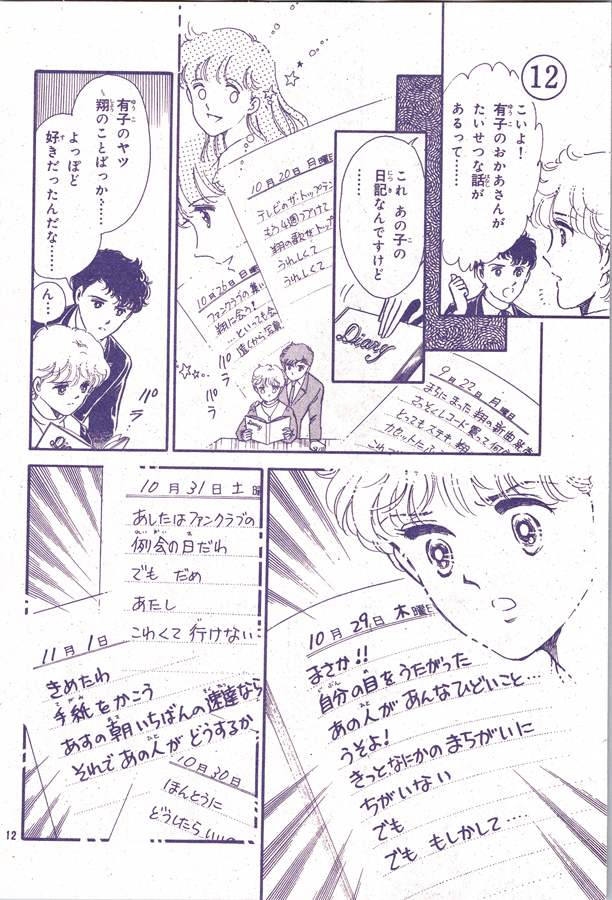 12
こいよ!
有子のおかあさんが
たいせつな話が
あるって……
これ あの子の
日記なんですけど
Diary
9月22日 月曜日
まちにまった翔の新曲発売
さっそくレコード買って何回
とってもステキ 翔
カセットに
10月20日 月曜
テレビのザ・トップテン
もう4週つづけて
翔の歌がトップ
うれしくて
うれしくて
10月26日 日曜
ファンクラブの集い
翔に会う!
…といっても会
遠くから写真
パラ
パラ
有子のヤツ
翔のことばっか……
よっぽど
好きだったんだな……
ん…
10月29日 木曜日
まさか!!
自分の目をうたがった
あの人があんなひどいこと…
うそよ!
きっとなにかのまちがいに
ちがいない
でも
でも もしかして…
10月30日
ほんとうに
どうしたらいいの
10月31日 土曜
あしたはファンクラブの
例会の日だわ
でも だめ
あたし
こわくて 行けない
11月1日
きめたわ
手紙をかこう
あすの朝いちばんの速達なら
それであの人が どうするか
12